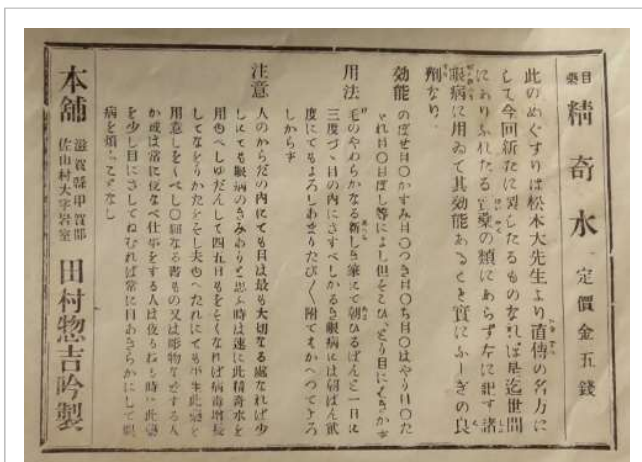 目薬 精奇水 定價金五錢
此のめぐすりは松本大先生より直傳の名方に
して今回新たに製したるものなれば是迄世間
にありふれたる目藥の類にあらず左に記す諸
眼病に用ゐて其効能あること實にふしぎの良
劑なり
効能 のぼせ目〇かすみ目〇つき目〇ち目〇はやり目〇た
れ目〇目ぼし等によし但そこひ、とり目にきかず
用法 毛のやわらかなる新しき筆にて朝ひるばんと一日に
三度づゝ目の内にさすべしかるき眼病には朝ばん貳
度にてもよろしあまりたび〱附てもかへつてよろ
しからず
注意 人のからだの内にても目は最も大切なる處なれば少
しにても眼病のきみありと思ふ時は速に此精奇水を
用ゆべしゆだんして四五日もをそくなれば病毒増長
してなをりかたをそし夫ゆへたれにても平生此藥を
用意しをくべし〇細なる書もの又は彫物などする人
か或は常に夜なべ仕事をする人は夜るねる時に此藥
を少し目にさしてねむれば常に目あきらかにして眼
病を煩ふことなし
本舗 滋賀縣甲賀郡
佐山村大字岩室 田村惣吉吟製